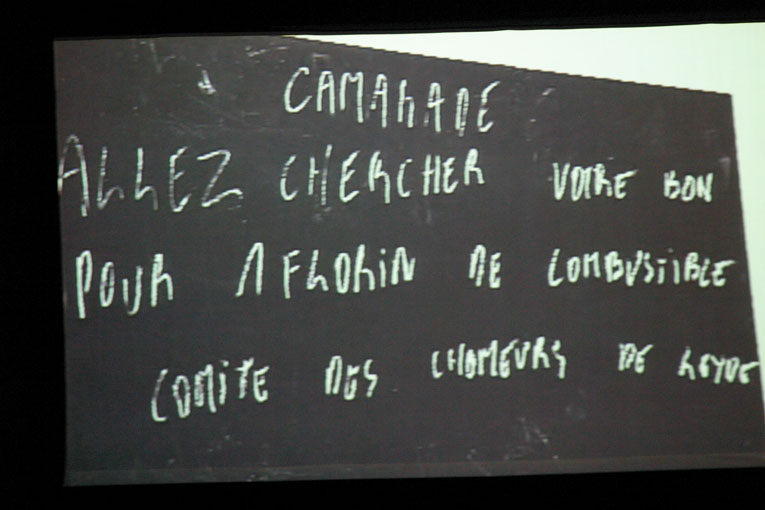 CAMARADE
ALLEZ CHERCHER VOTRE BON
POUR 1 FLORIN DE COMBUSTIBLE
COMITE DES CHOMEURS DE LEYDE